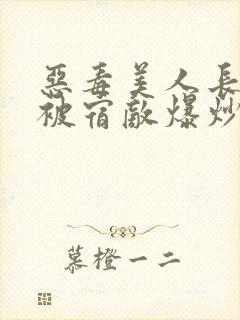 惡毒美人長
被宿敵爆炒
慕橙一二